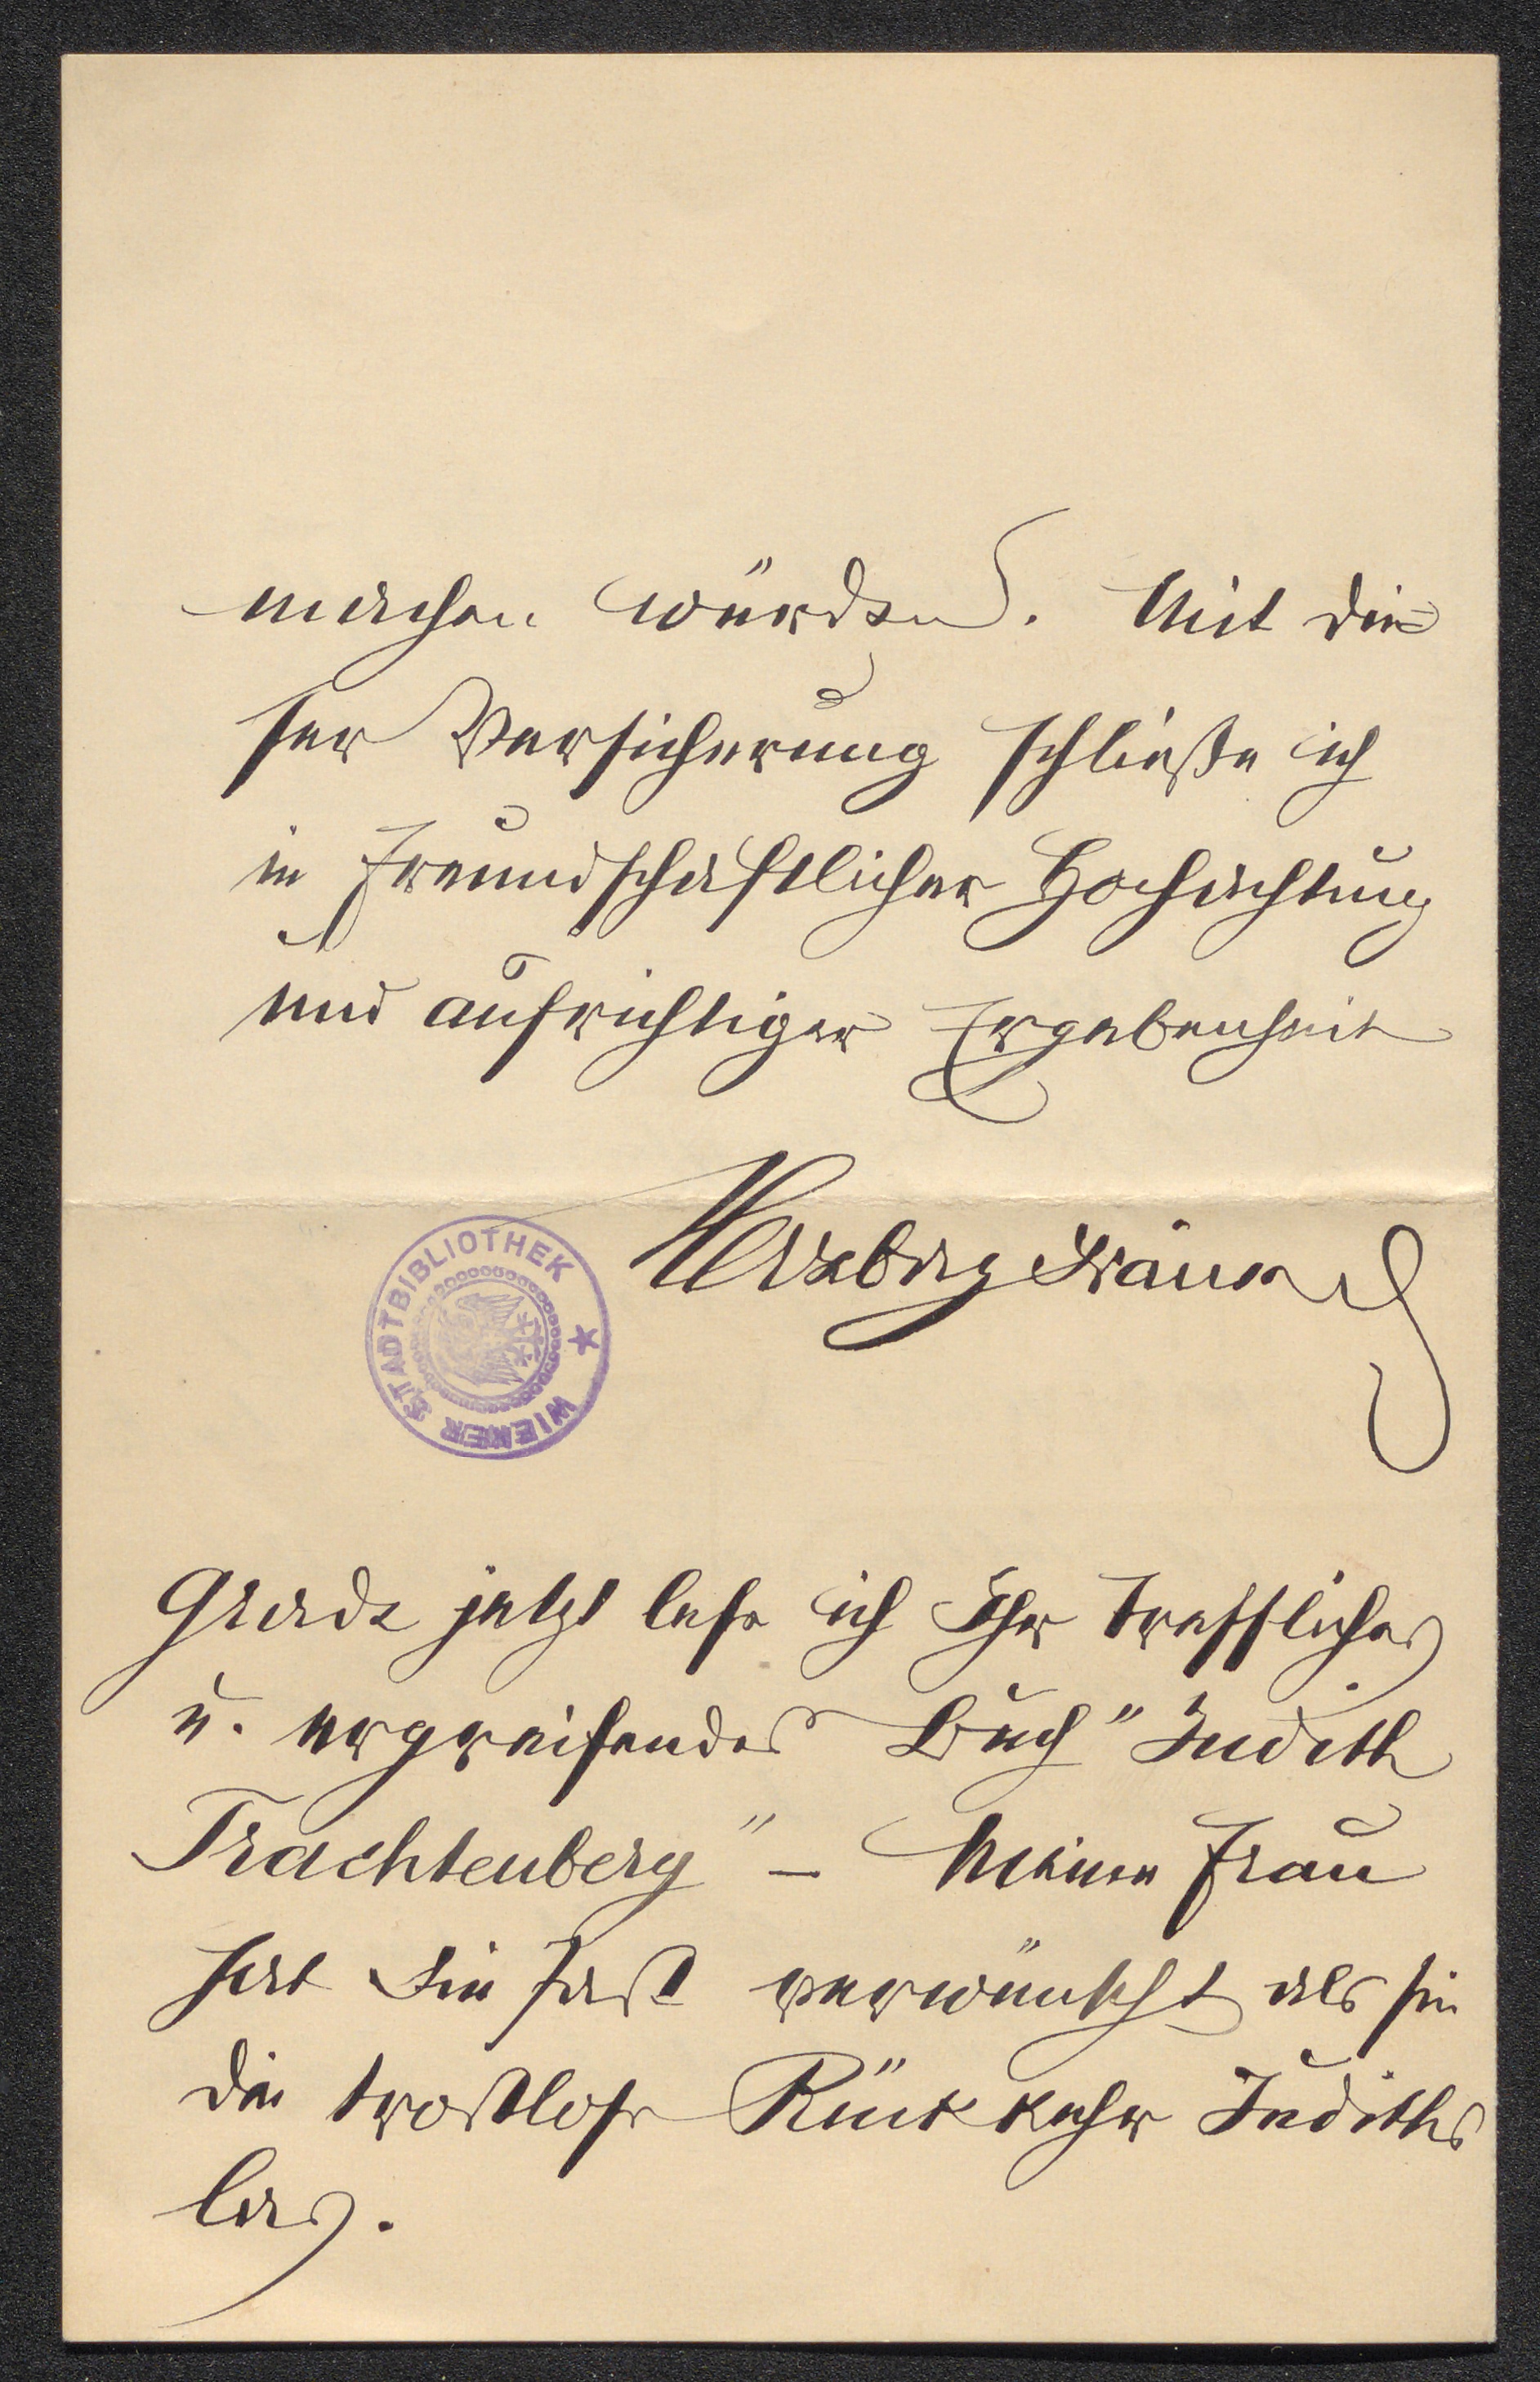 machen würden. Mit die=
ser Versicherung schließe ich
in freundschaftlicher Hochachtung
und aufrichtiger Ergebenheit
Herzberg Fränkel
WIENER STADTBIBLIOTHEK
Grade jetzt lese ich Ihr treffliches
u. ergreifendes Buch "Judith
Trachtenberg" – Meine Frau
hat Sie fast verwünscht als sie
die trostlose Rückkehr Judiths
las.